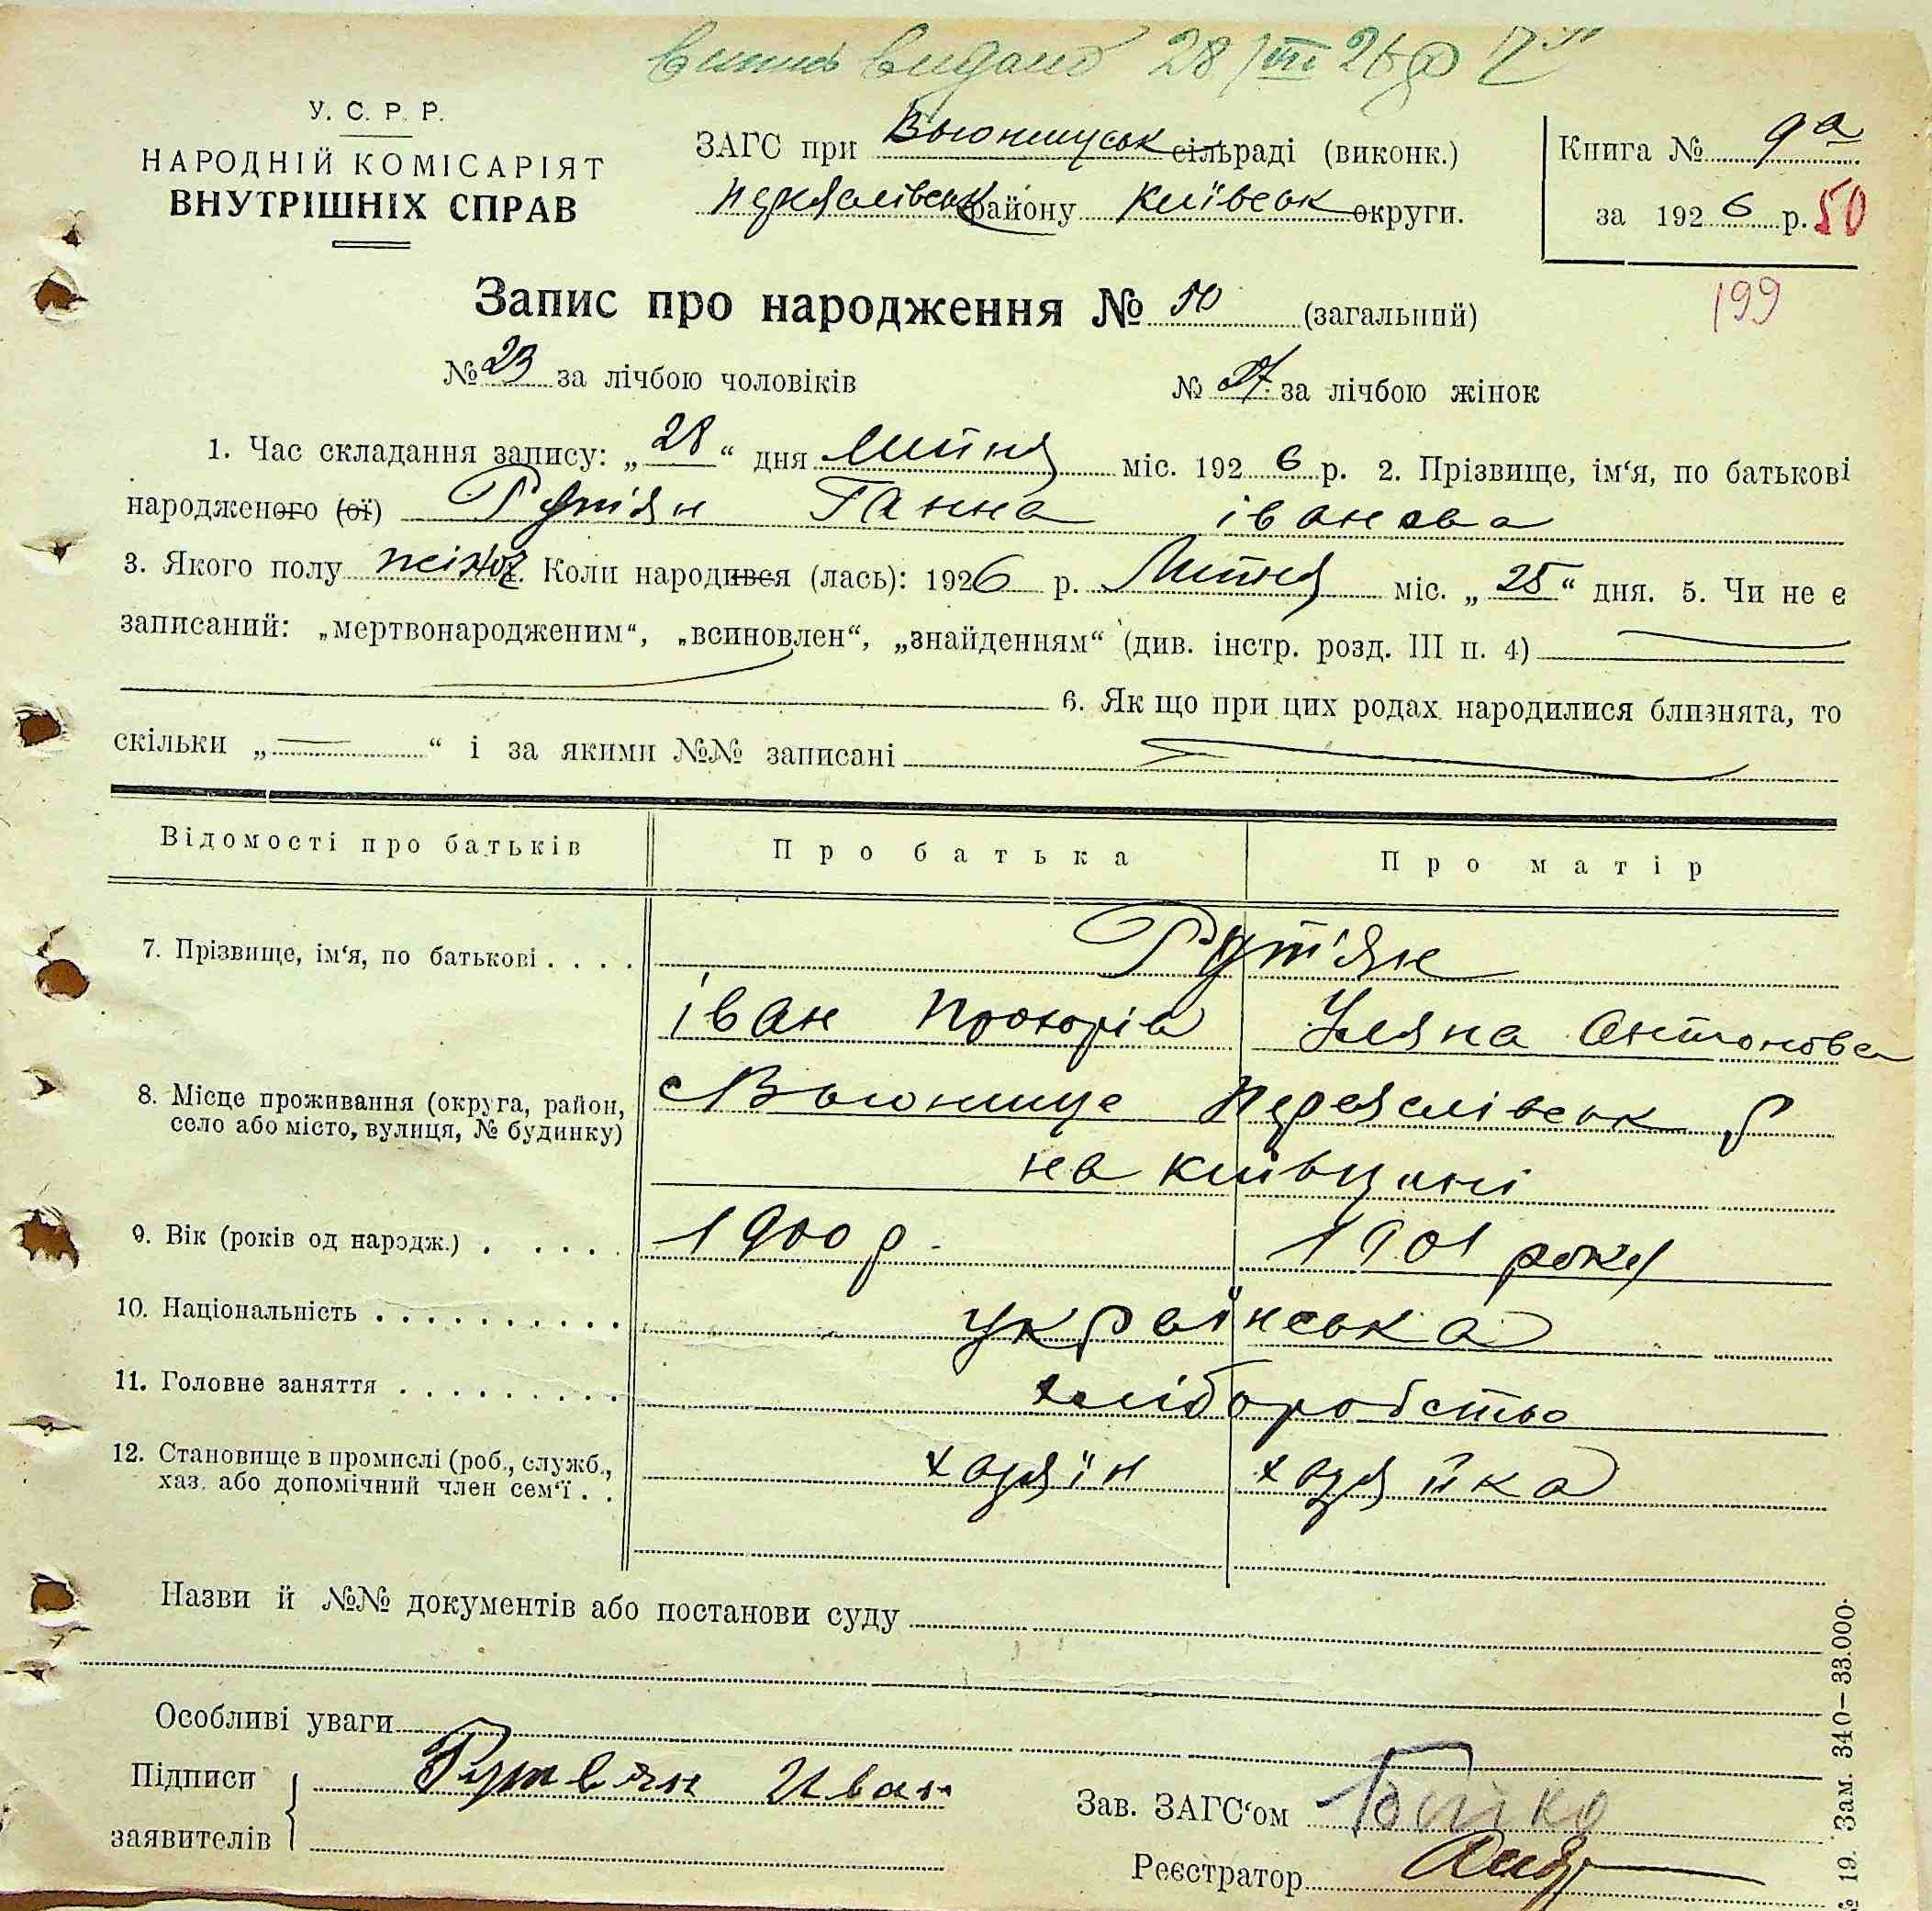 Виписъ видано 28/VII 26 р
У. С. Р. Р.
НАРОДНІЙ КОМІСАРІЯТ
ВНУТРІШНІХ СПРАВ
ЗАГС при Вьюнищськ сільраді (виконк.)
Переяслівськ району Київськ округи.
Книга № 9а
за 1926 р. 50
199
Запис про народження № 50 (загальний)
№ 23 за лічбою чоловіків № 27 за лічбою жінок
1. Час складання запису: „28“ дня Липня міс. 1926 р. 2. Прізвище, ім‘я, по батькові
народженого (ої) Рутьян Ганна іванова
3. Якого полу жіноч. Коли народився (лась): 1926 р. Липня міс. „25“ дня. 5. Чи не є
записаний: „мертвонародженим“, „всиновлен“, „знайденням“ (див. інстр. розд. III п. 4)
6. Як що при цих родах народилися близнята, то
скільки „ “ і за якими №№ записані
Відомості про батьків Про батька Про матір
7. Прізвище, ім‘я, по батькові . . . . Рут'ян
іван Прохорів Уляна Антонова
8. Місце проживання (округа, район,
село або місто, вулиця, № будинку)
с Вьюнище Переяслівськ р
на київщині
9. Вік (років од народж.) . . . . . 1900 р. 1901 року
10. Національність . . . . . . . . . . українська
11. Головне заняття . . . . . . . . . . хліборобство
12. Становище в промислі (роб., служб.,
хаз. або допомічний член сем‘ї . .
хазяїн хазяйка
Назви й №№ документів або постанови суду
Особливі уваги
Підписи
заявителів
Рутвян Иван
Зав. ЗАГС‘ом Бойко
Реєстратор
№ 19. Зам. 340—33.000.